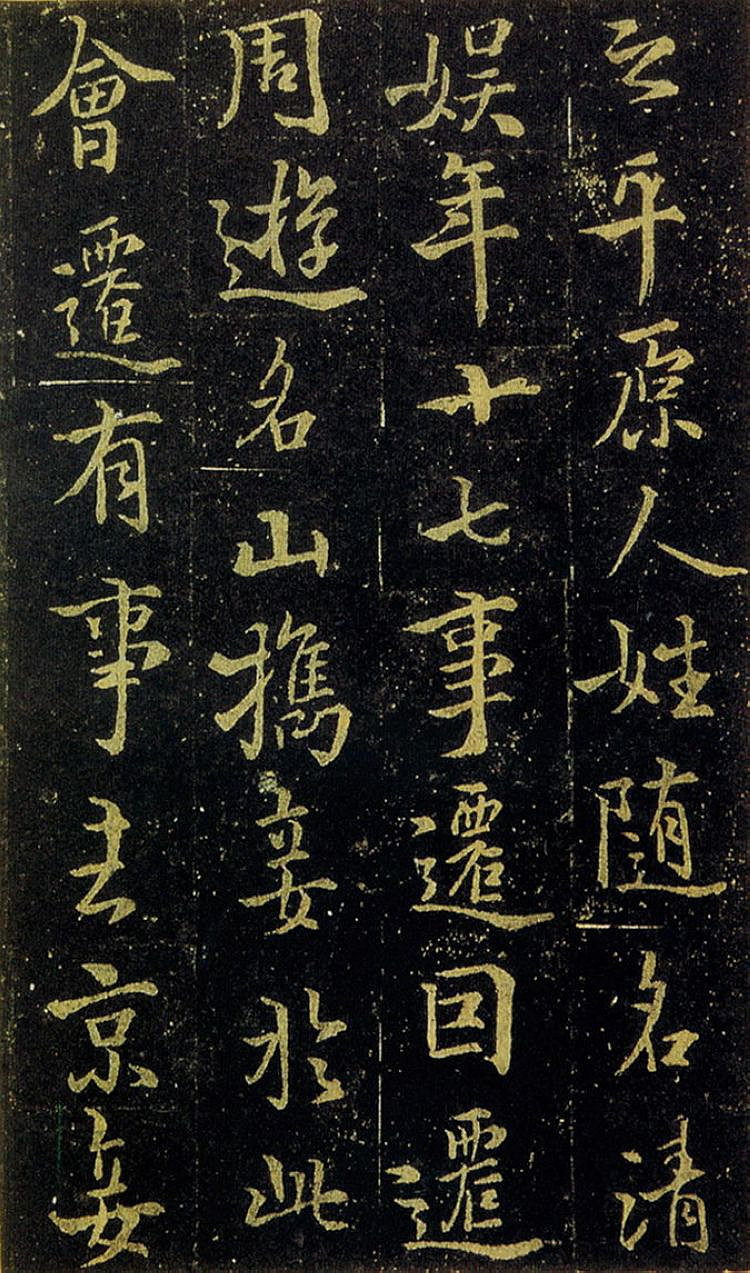 之平原人姓随名清
娱年十七事遷因遷
周遊名山携妾於此
會遷有事去京妾